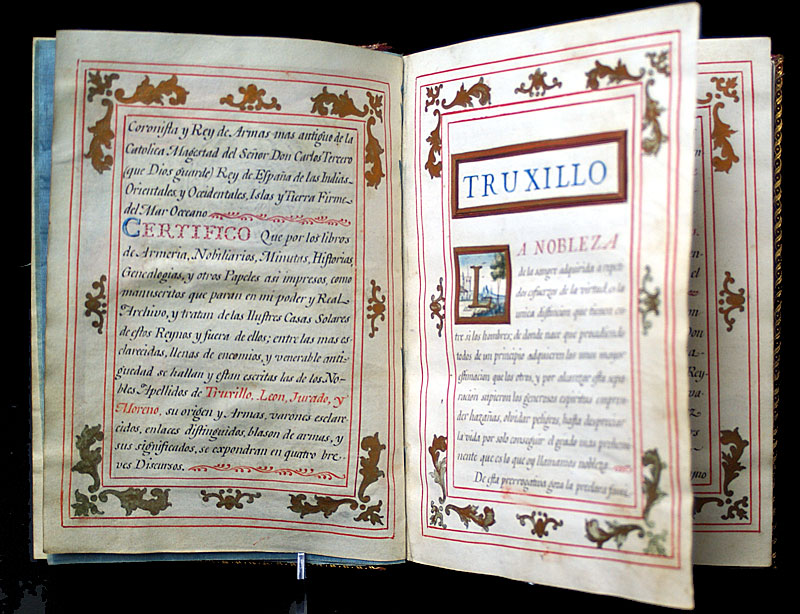 Coronista y Rey de Armas mas antiguo de la
Catolica Magestad del Señor Don Carlos Tercero
(que Dios guarde) Rey de España de las Indias
Orientales, y Occidentales, Islas y Tierra Firme
del Mar Oceano
CERTIFICO Que por los libros
de Armeria, Nobiliarios, Minutas, Historias
Genealogias, y otros Papeles asi impresos, como
manuscritos que paran en mi poder y Real
Archivo, y tratan de las Ilustres Casas Solares
de estos Reynos y fuera de ellos; entre las mas es-
clarecidas, llenas de encomios, y venerable anti-
guedad se hallan y estan escritas las de los No-
bles Apellidos de Truxillo, Leon, Jurado, y
Moreno, su origen y Armas, varones esclare-
cidos, enlaces distinguidos, blason de armas, y
sus significados, se expondran en quatro bre-
ves Discursos.
TRUXILLO
LA NOBLEZA
de la sangre adquirida a repeti-
dos esfuerzos de la virtud, es la
unica distincion que tienen en-
tre si los hombres; de donde nace que procediendo
todos de un principio adquieren los unos mayor
estimacion que los otros, y por afianzar esta sepa-
racion supieron los generosos espiritus empren-
der hazañas, olvidar peligros, hasta despreciar
la vida por solo conseguir el grado mas prehemi-
nente que es lo que oy llamamos nobleza.
De esta prerrogativa goza la preclara fami-